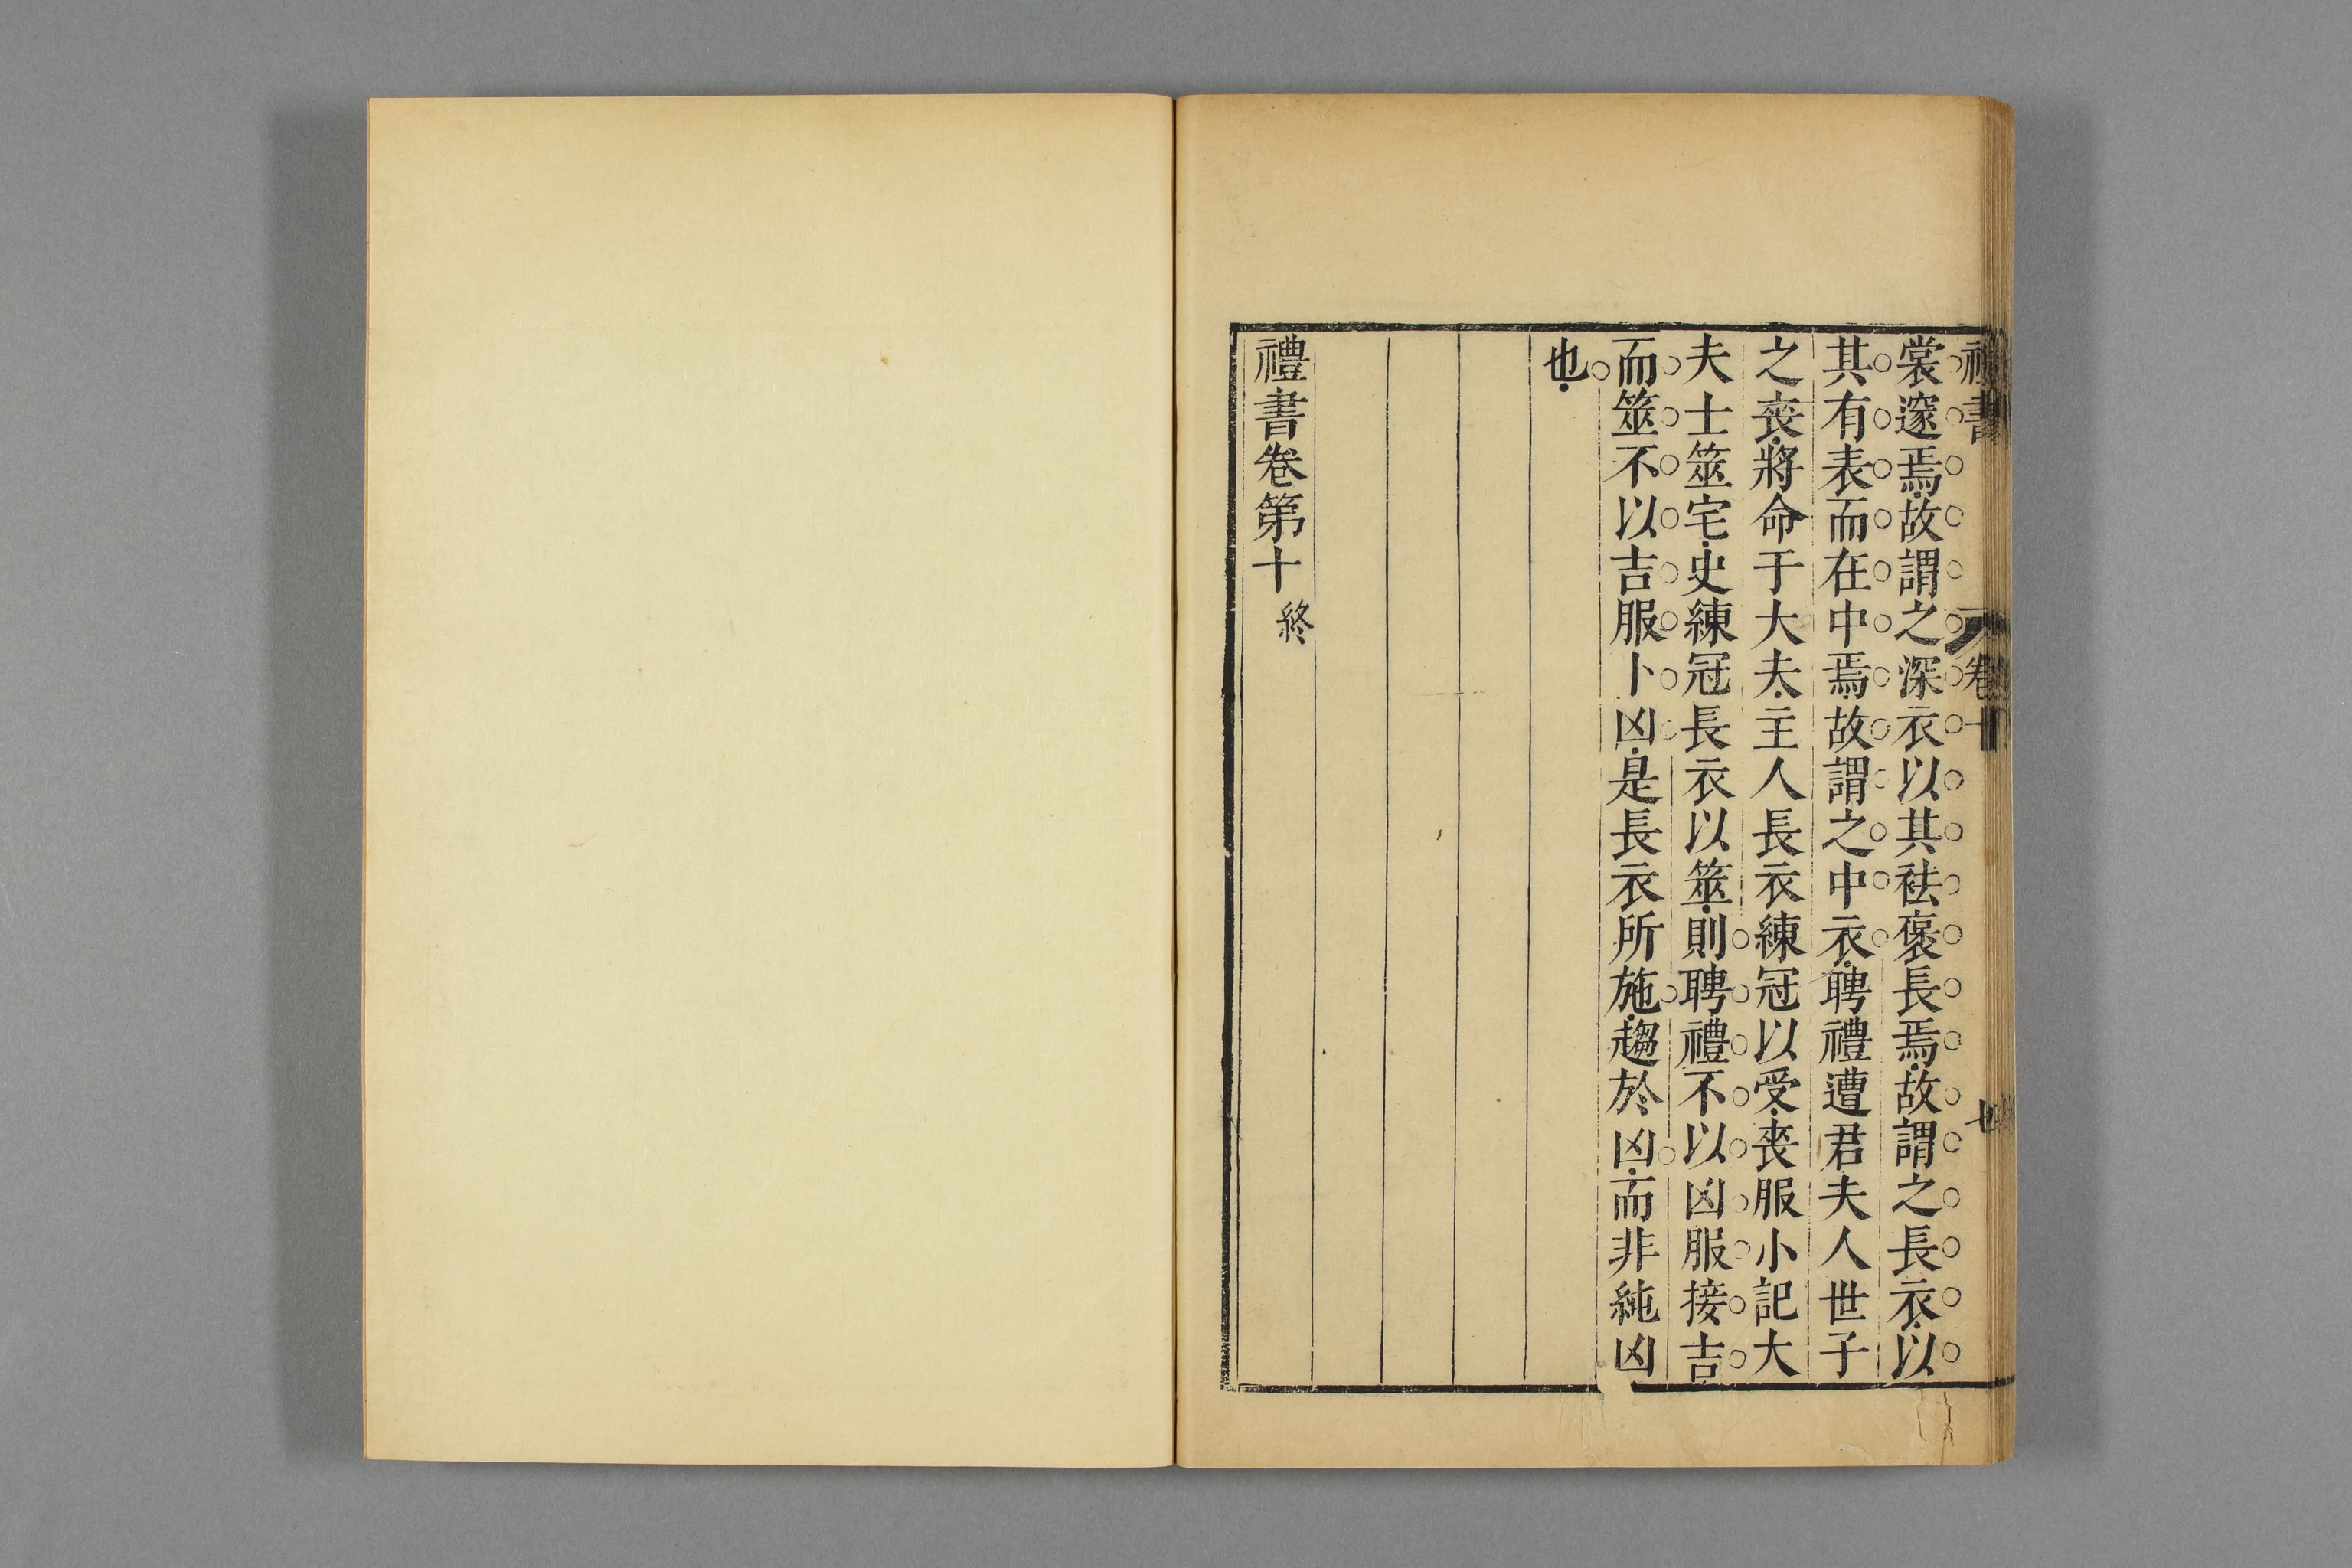 裳邃焉故謂之深衣以其袪褎長焉故謂之長衣以
其有表而在中焉故謂之中衣聘禮遭君夫人世子
之喪將命于大夫主人長衣練冠以受喪服小記大
夫士筮宅史練冠長衣以筮則聘禮不以凶服接吉
而筮不以吉服卜凶是長衣所施趨於凶而非純凶
也
禮書卷第十終